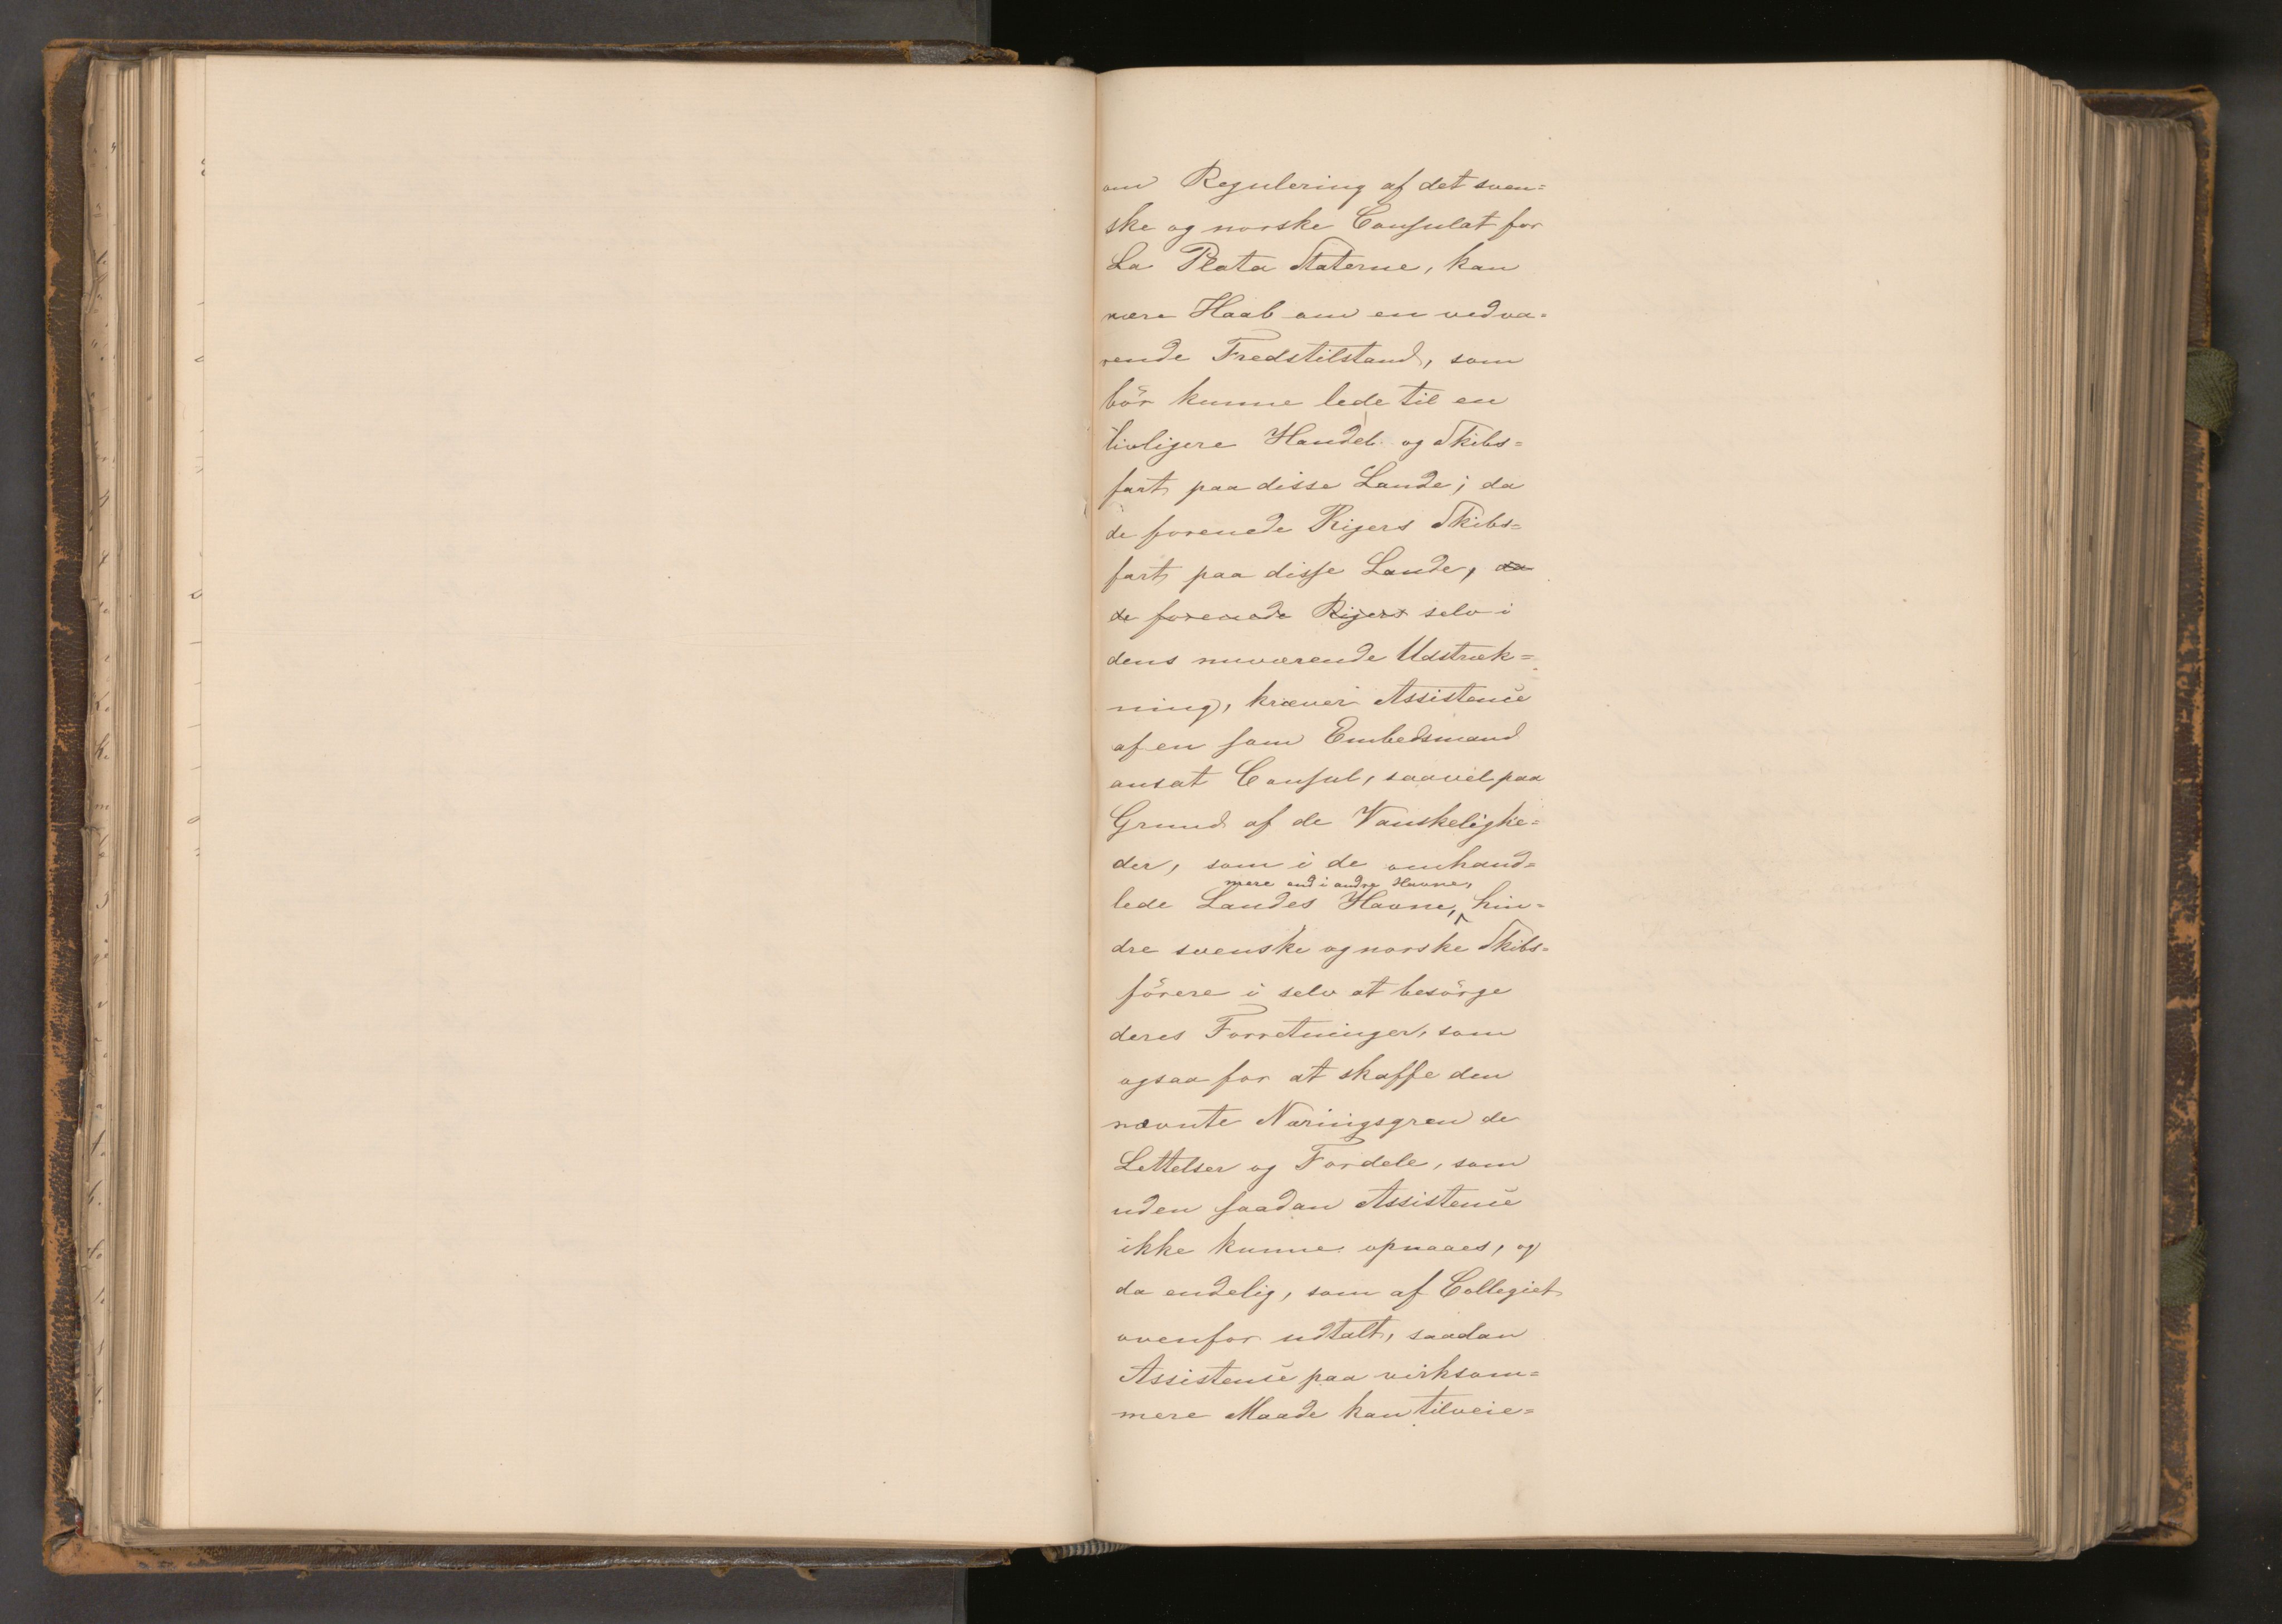 om Regulering af det sven=
ske og norske Consulat for
La Plata Staterne, kan
være Haab om en vedva=
rende Fredstilstand, som
bör kunne lede til en
livligere Handel og Skibs=
fart paa disse Lande; da
de forenede Rigers Skibs=
fart paa disse Lande, da
de forenede Rigers selv i
dens nuværende Udstræk=
ning, kræver Assistence
af en som Embedsmand
ansat Consul, saavel paa
Grund af de Vanskelighe=
der, som i de omhand=
mere end i andre Havne,
lede Landes Havne, hin=
dre svenske og norske Skibs=
förere i selv at besörge
deres Forretninger, som
ogsaa for at skaffe den
nævnte Næringsgren de
Lettelser og Fordele, som
uden saadan Assistence
ikke kunne opnaaes, og
da endelig, som af Collegiet
ovenfor udtalt, saadan
Assistence paa virksom=
mere Maade kan tilveie=